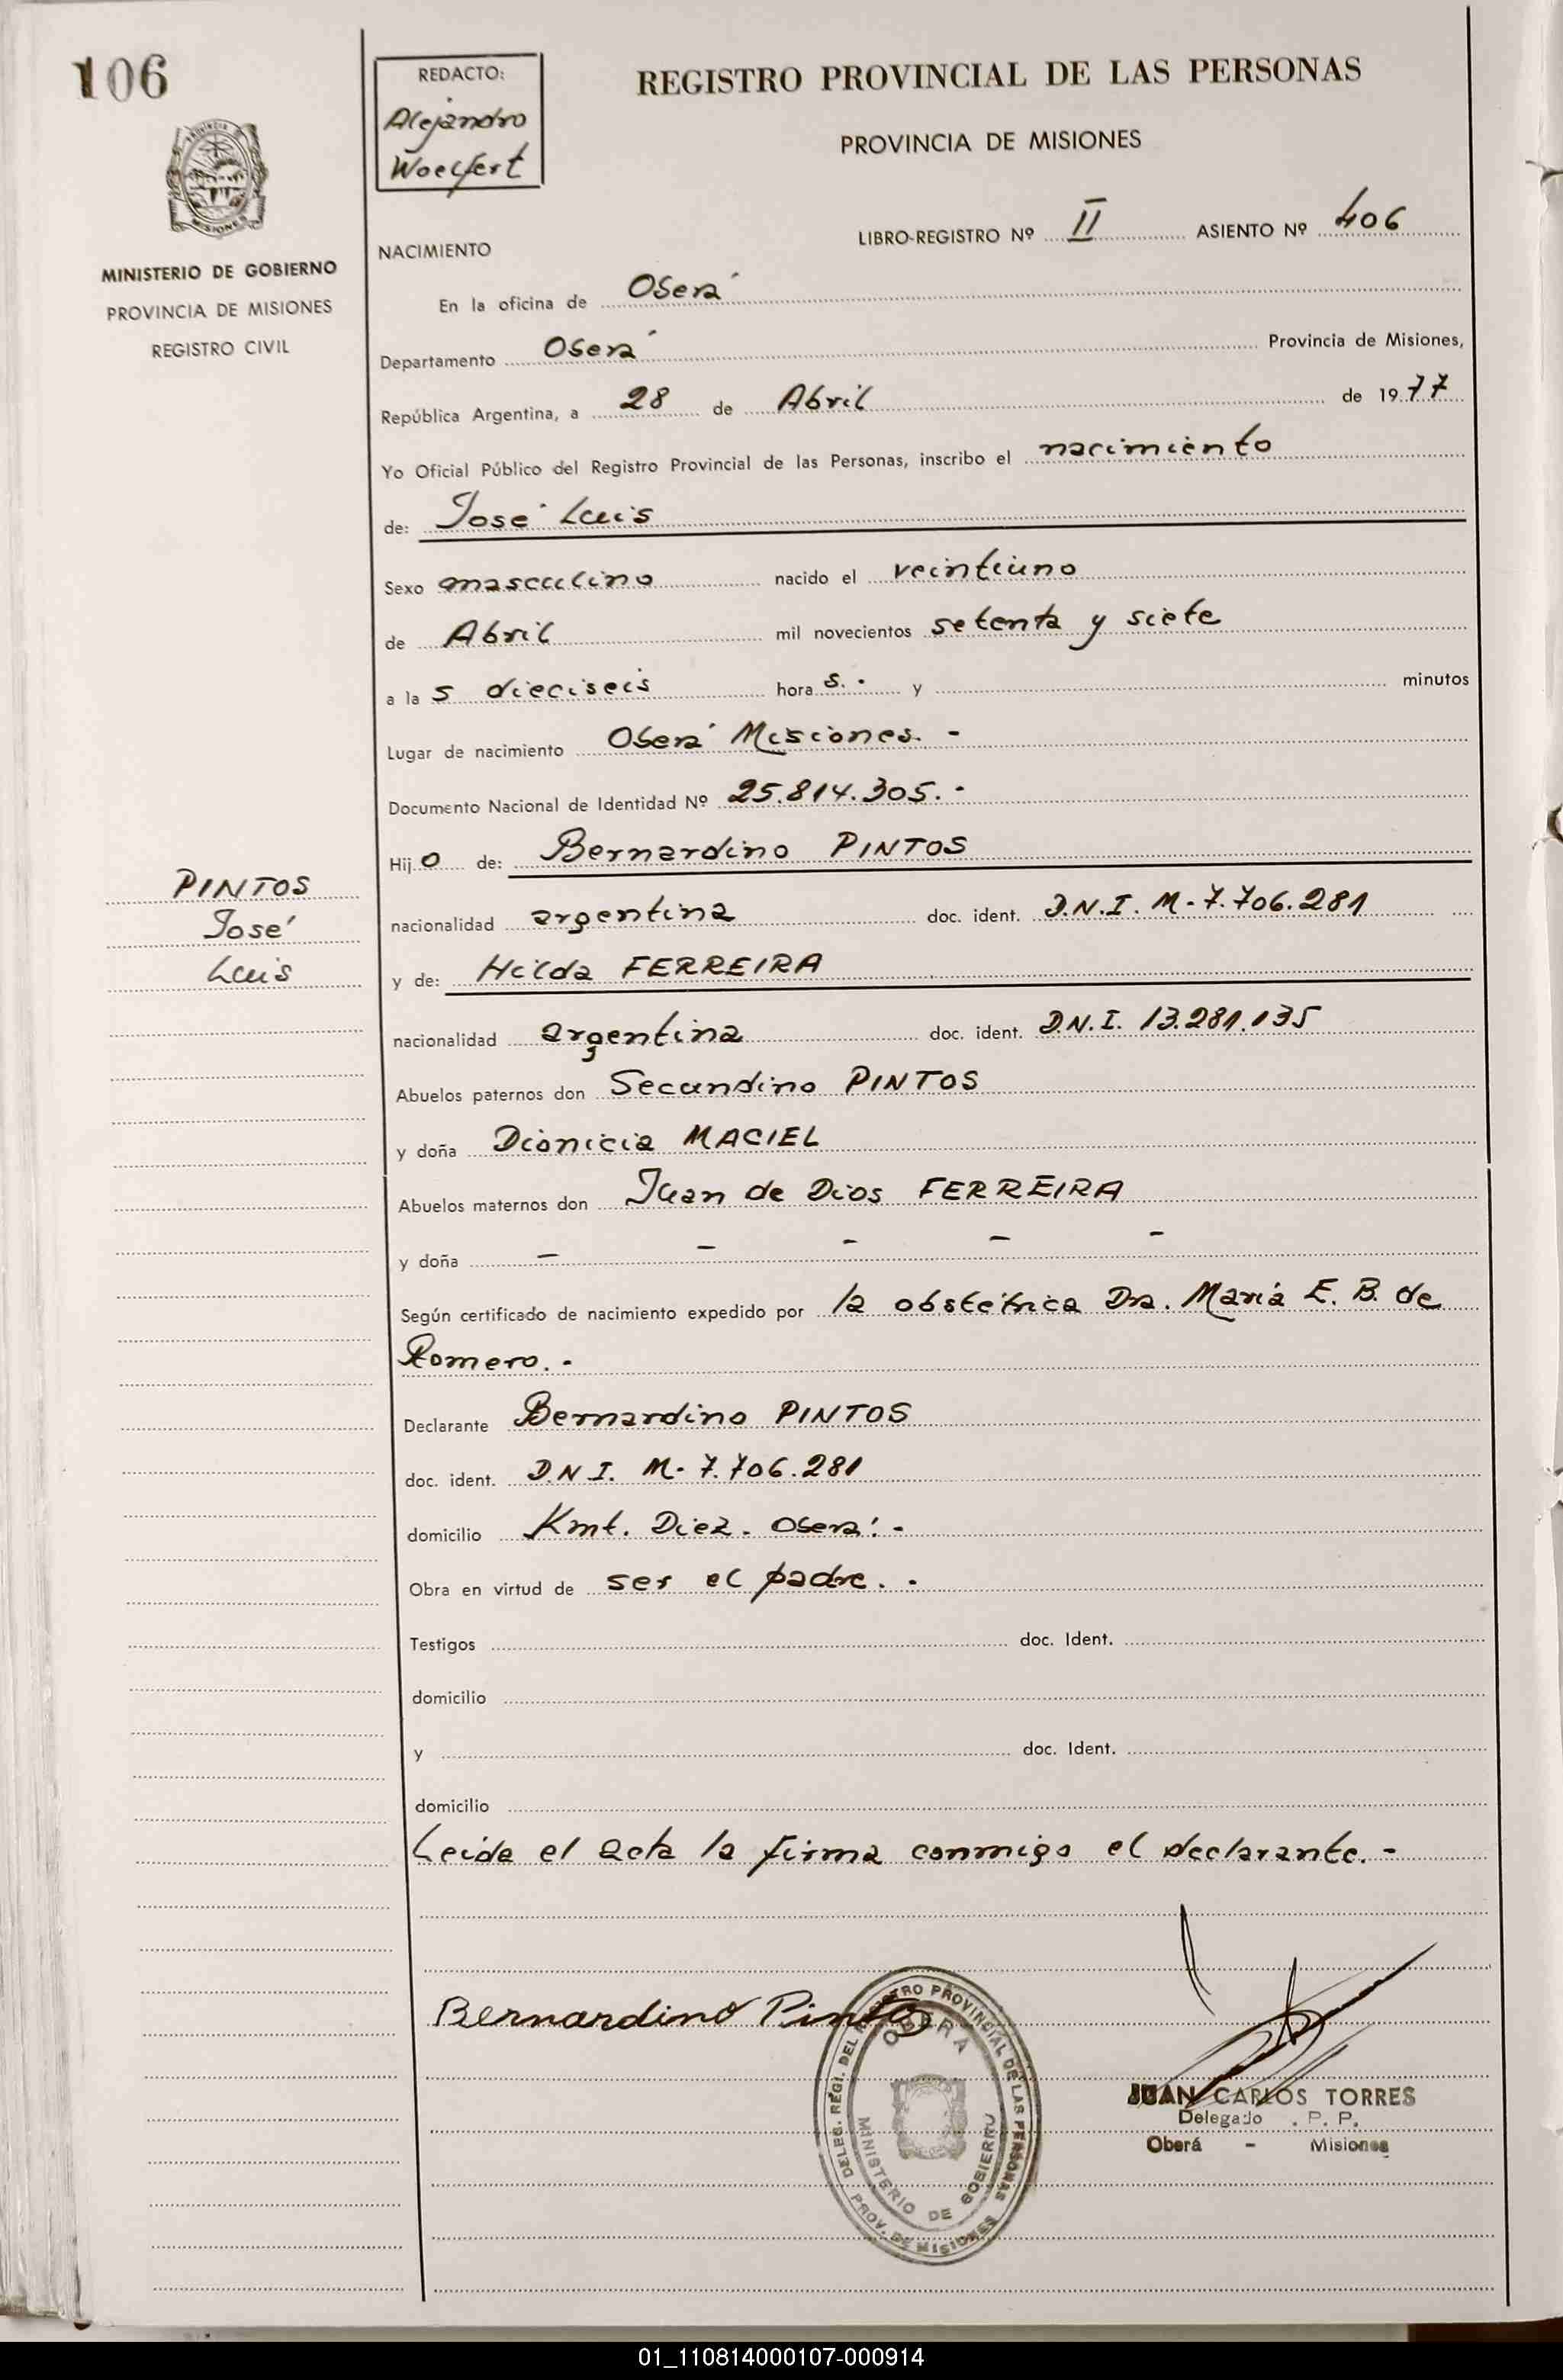 106
REDACTO:
Alejandro
Woelfert
REGISTRO PROVINCIAL DE LAS PERSONAS
PROVINCIA DE MISIONES
MISIONES
MINISTERIO DE GOBIERNO
PROVINCIA DE MISIONES
REGISTRO CIVIL
LIBRO-REGISTRO Nº II ASIENTO Nº 406
NACIMIENTO
En la oficina de Oberá
Departamento Oberá Provincia de Misiones,
República Argentina, a 28 de Abril de 1977
Yo Oficial Público del Registro Provincial de las Personas, inscribo el nacimiento
de: José Luis
Sexo masculino nacido el veintiuno
de Abril mil novecientos setenta y siete
a la s dieciseis hora s. - y minutos
Lugar de nacimiento Oberá Misiones. -
Documento Nacional de Identidad Nº 25.814.305. -
Hijo de: Bernardino PINTOS
PINTOS
José
Luis
nacionalidad argentina doc. ident. D.N.I. M-7.706.281
y de: Hilda FERREIRA
nacionalidad argentina doc. ident. D.N.I. 13.281.135
Abuelos paternos don Secundino PINTOS
y doña Dionicia MACIEL
Abuelos maternos don Juan de Dios FERREIRA
y doña - - - - -
Según certificado de nacimiento expedido por la obstétrica Dra. María E. B. de
Romero. -
Declarante Bernardino PINTOS
doc. ident. D.N.I. M-7.706.281
domicilio Kmt. Diez. Oberá. -
Obra en virtud de ser el padre. -
Testigos doc. Ident.
domicilio
y doc. Ident.
domicilio
Leida el acta la firma conmigo el declarante. -
Bernardino Pintos
DELEG. REGI. DEL REGISTRO PROVINCIAL DE LAS PERSONAS
OBERA
MINISTERIO DE GOBIERNO
PROV. DE MISIONES
JUAN CARLOS TORRES
Delegado . P. P.
Oberá - Misiones
01_110814000107-000914